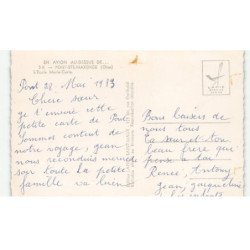 EN AVION AU-DESSUS DE...
PONT-STE-MAXENCE (Oise)
L'École Marie-Curie
Pont 28 Mai 1983
Chère sœur
je t'envoie cette
petite carte de Pont
Sommes content de
notre voyage, jean
nous reconduis mercredi
soir toute la petite
famille va bien
Bons baisers de
nous tous
ta sœur et ton
beau frère qui
pense à toi
Renée, Antony
jean, jacqueline